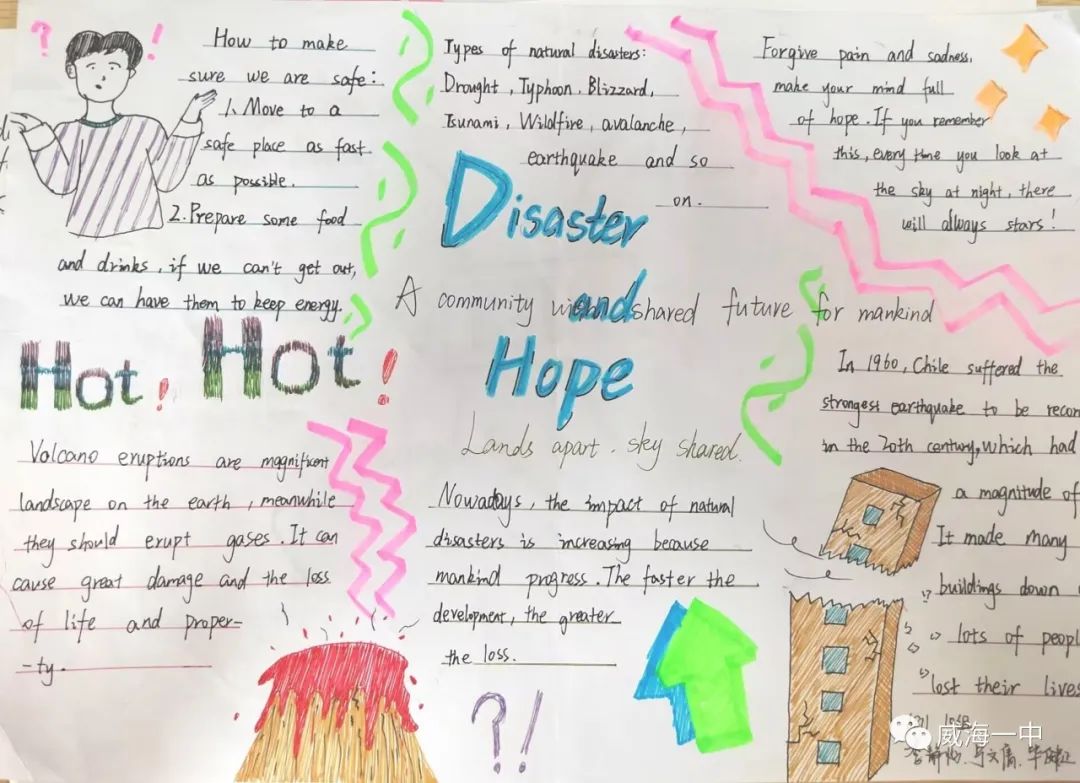 How to make
sure we are safe:
1. Move to a
safe place as fast
as possible.
2. Prepare some food
and drinks, if we can't get out,
we can have them to keep energy.
Types of natural disasters:
Drought, Typhoon, Blizzard,
Tsunami, Wildfire, avalanche,
earthquake and so
on.
Forgive pain and sadness,
make your mind full
of hope. If you remember
this, every time you look at
the sky at night, there
will always stars!
Disaster
and
Hope
A community shared future for mankind
Lands apart. sky shared.
Hot! Hot!
Volcano eruptions are magnificent
landscape on the earth, meanwhile
they should erupt gases. It can
cause great damage and the loss
of life and proper-
-ty.
Nowadays, the impact of natural
disasters is increasing because
mankind progress. The faster the
development, the greater
the loss.
In 1960, Chile suffered the
strongest earthquake to be recor
in the 20th century, which had
a magnitude of
It made many
buildings down
lots of peopl
lost their lives
?!
威海一中